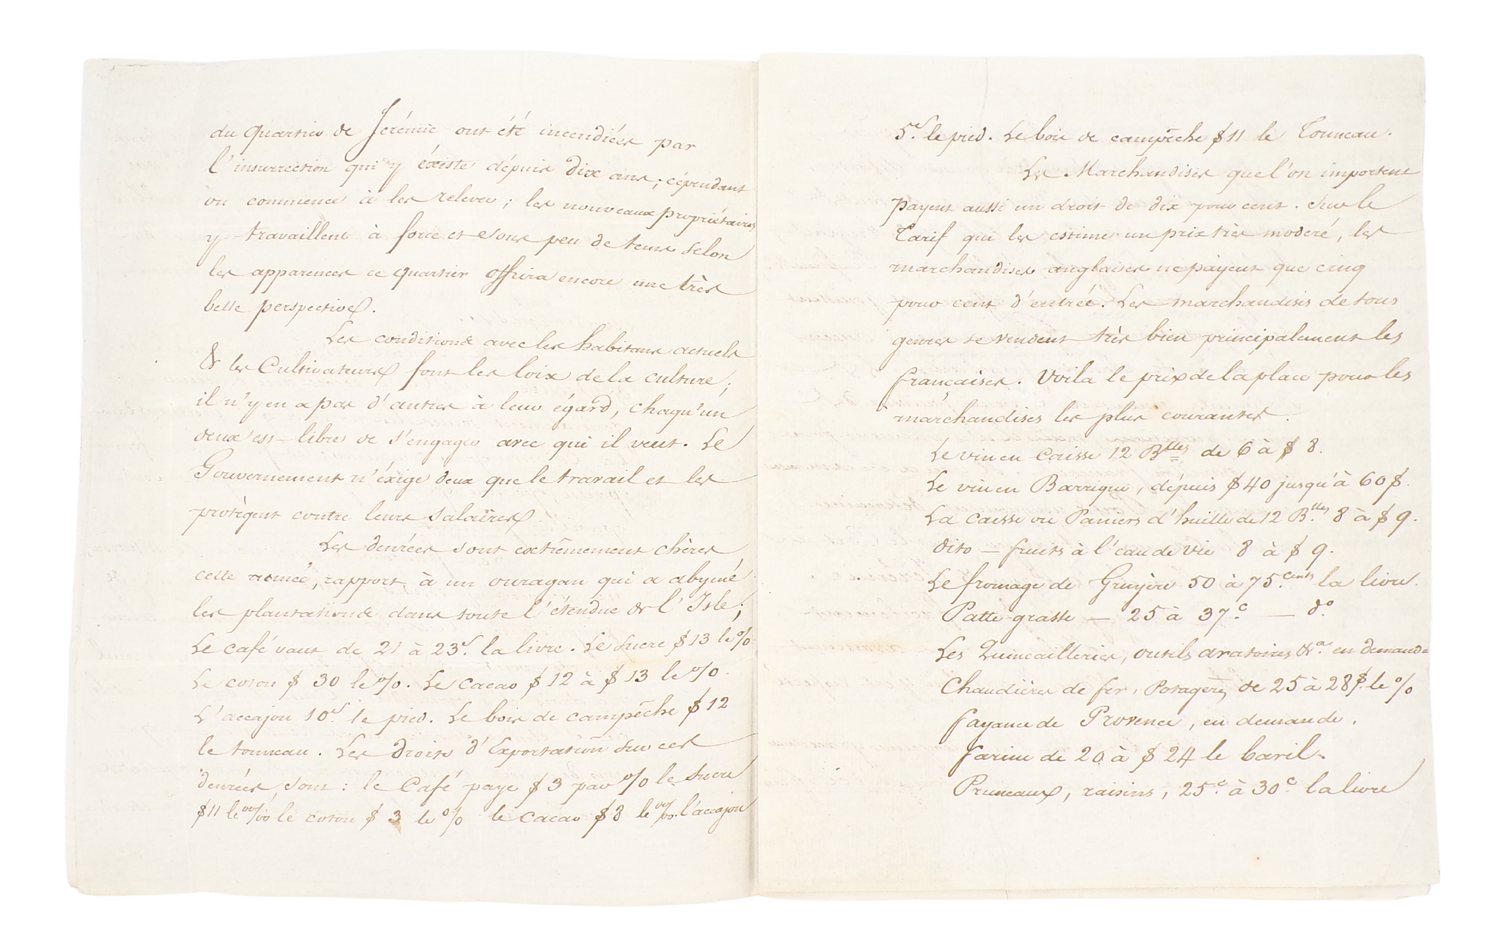 du quartier de Jérémie ont été incendiées par
l'insurrection qui y éxiste dépuis dix ans; cépendant
on commence à les relever; les nouveaux propriétaires
y travaillent à force et sous peu de tems selon
les apparences ce quartier offrira encore une très
belle perspective.
Les conditions avec les habitans actuels
& les Cultivateurs font les loix de la culture;
il n'y en a pas d'autres à leur égard, chaqu'un
deux est libre de s'engager avec qui il veut. Le
Gouvernement n'éxige deux que le travail et les
protègent contre leurs salaires
Les denrées sont extrêmement chères
cette année, rapport à un ouragan qui a abymé
les plantations dans toute l'étendue de l'Isle;
Le café vaut de 21 à 23s. la livre. Le Sucre $13 le %
Le coton $ 30 le %. Le Cacao $ 12 à $ 13 le %.
L'accajou 10s. le pied. Le bois de campêche $ 12
le tonneau. Les droits d'Exportation sur ces
denrées, sont: le Café paye $ 3 par % le Sucre
$11 le 00/00 le coton $ 3 le % le cacao $ 8 le 00/00. l'accajou
5s. le pied. Le bois de campêche $11 le Tonneau.
Les Marchandises que l'on importent
payent aussi un droit de dix pour cent. Sur le
Tarif qui les estime un prix très modéré, les
marchandises anglaises ne payent que cinq
pour cent d'entrée. Les marchandises de tous
genres se vendent très bien principalement les
françaises. Voila le prix de la place pour les
marchandises les plus courantes.
Le vin en Caisse 12 Btlles de 6 à $ 8.
Le vin en Barrique, dépuis $ 40 jusqu'à 60 $.
La caisse ou Paniers d'huille de 12 Btlles 8 à $ 9.
dito — fruits à l'eau de vie 8 à $ 9.
Le fromage de Gruyère 50 à 75 Cents la livre.
Patte grasse — 25 à 37c — do
Les Quincailleries, outils aratoires &a. en demande
Chaudières de fer, Potagers de 25 à 28 $. le %
fayance de Provence, en demande.
farine de 20 à $ 24 le baril
Pruneaux, raisins, 25c à 30c la livre